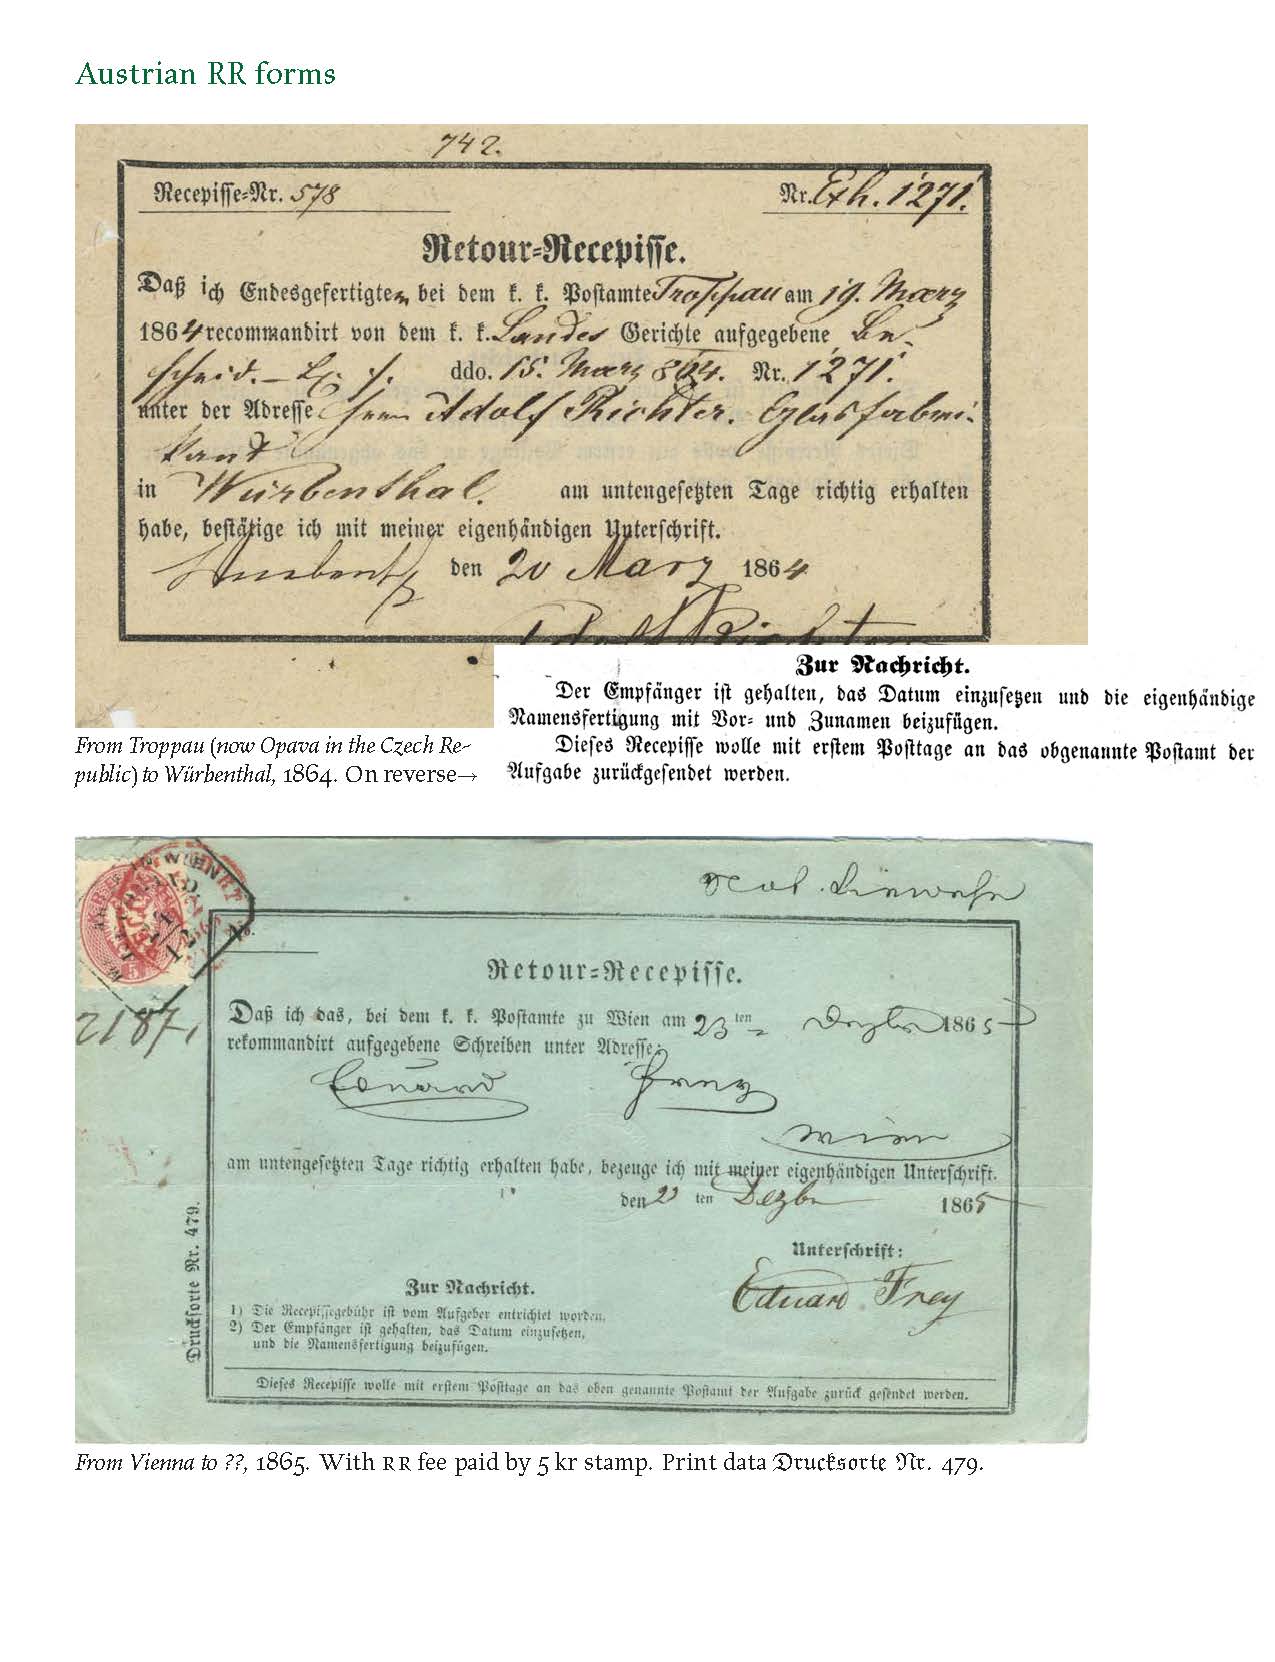 Austrian RR forms
742.
Recepisse=Nr. 578
Nr. Exh. 1271.
Retour=Recepisse.
Daß ich Endesgefertigter bei dem k. k. Postamte Troppau am 19. Marz
1864 recommandirt von dem k. k. Landes Gerichte aufgegebene Be-
scheid. ddo. 15. Marz 864. Nr. 1271.
unter der Adresse Herrn Adolf Richter. Glasfabri-
kant
in Würbenthal. am untengesetzten Tage richtig erhalten
habe, bestätige ich mit meiner eigenhändigen Unterschrift.
den 20 Marz 1864
Adolf Richter
Zur Nachricht.
Der Empfänger ist gehalten, das Datum einzusetzen und die eigenhändige
Namensfertigung mit Vor= und Zunamen beizufügen.
Dieses Recepisse wolle mit erstem Posttage an das obgenannte Postamt der
Aufgabe zurückgesendet werden.
From Troppau (now Opava in the Czech Re-
public) to Würbenthal, 1864. On reverse→
WIEN
5
2187
Retour=Recepisse.
Daß ich das, bei dem k. k. Postamte zu Wien am 23 ten Dezbr 1865
rekommandirt aufgegebene Schreiben unter Adresse:
Eduard Frey
Wien
am untengesetzten Tage richtig erhalten habe, bezeuge ich mit meiner eigenhändigen Unterschrift.
den 23 ten Dezbr 1865
Unterschrift:
Eduard Frey
Zur Nachricht.
1) Die Recepissegebühr ist vom Aufgeber entrichtet worden.
2) Der Empfänger ist gehalten, das Datum einzusetzen,
und die Namensfertigung beizufügen.
Dieses Recepisse wolle mit erstem Posttage an das oben genannte Postamt der Aufgabe zurück gesendet werden.
Drucksorte Nr. 479.
From Vienna to ??, 1865. With RR fee paid by 5 kr stamp. Print data Drucksorte Nr. 479.